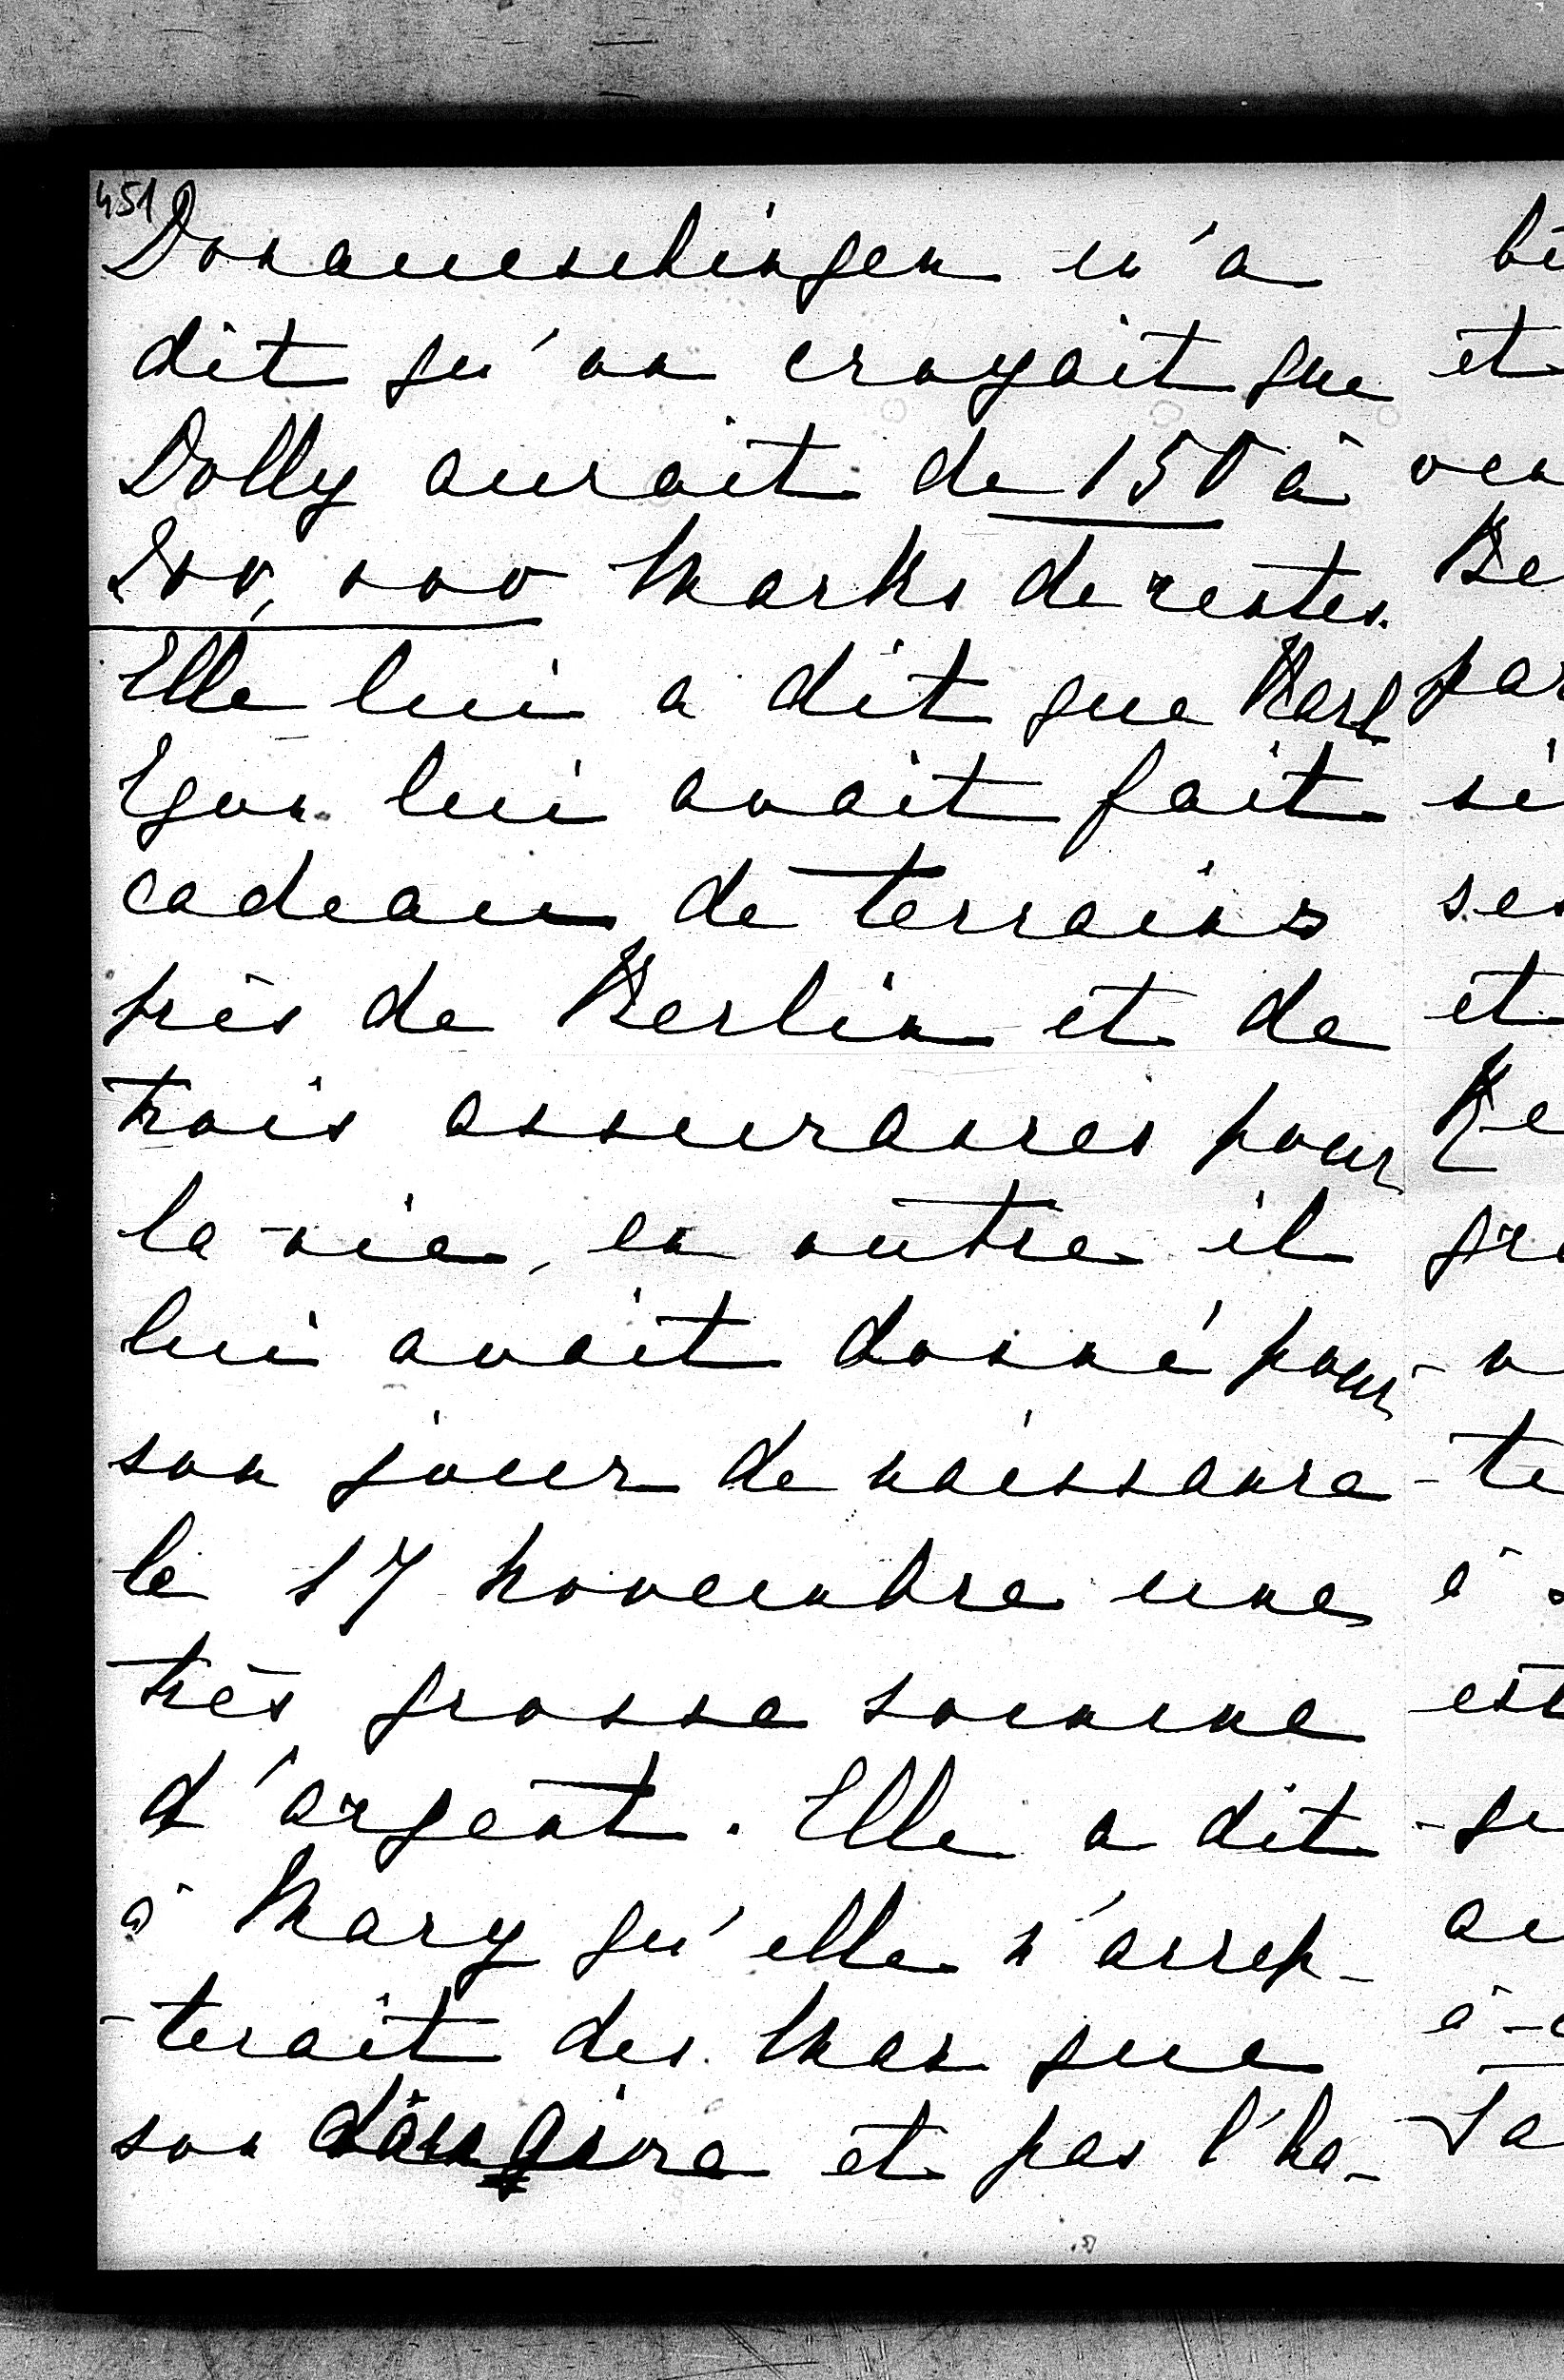 451
Donaueschingen m'a
dit qu'on croyait que
Dolly aurait de 150 à
200,000 Marks de rentes.
Elle lui a dit que Karl
Egon lui avait fait
cadeau de terrains
près de Berlin et de
trois assurances pour
la vie, en outre il
lui avait donné pour
son jour de naissance
le 17 novembre une
très grosse somme
d'argent. Elle a dit
à Mary qu'elle n'accep-
-terait des Max que
son douaire et pas l'hô-